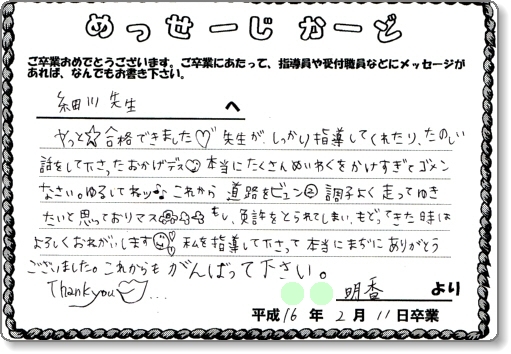 めっせーじ かーど
ご卒業おめでとうございます。ご卒業にあたって、指導員や受付職員などにメッセージが
あれば、なんでもお書き下さい。
細川 先生 へ
やっと☆合格できました♡ 先生が、しっかり指導してくれたり、たのしい
話をして下さったおかげデス 本当にたくさんめいわくをかけすぎてゴメン
なさい。ゆるしてねッ♪ これから 道路をビュンと調子よく走ってゆき
たいと思っておりマス もし、免許をとられてしまい、もどってきた時は
よろしくおねがいします 私を指導して下さって本当にまぢにありがとう
ございました。これからもがんばって下さい。
Thank you ...
明香 より
平成16年 2月 11日卒業